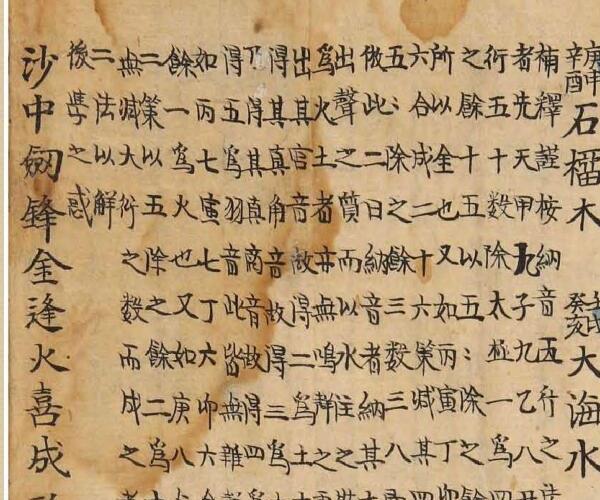 庚申辛酉石榴木壬戌癸亥大海水
補釋謹按納音五行之
者先天甲九子九乙八
行五十數除太極一為
之餘十五以五〻除之
所以金也又如丙寅丁
六合成二十六策減其
五〻除之餘三數三八
倣此二曰納音者納其
出聲之質而以水注之
為火土者亦無鳴聲土
出其宮音故得二為
得其真角音故得三為
乃得真商音故得四
得五為羽音此皆無雜
如丙七寅七丁六卯六
餘一為火也又如庚八
二策以五除之餘二為
無減大衍之數而成之
二法以解
後學之惑
沙中劒鋒金逢火喜成